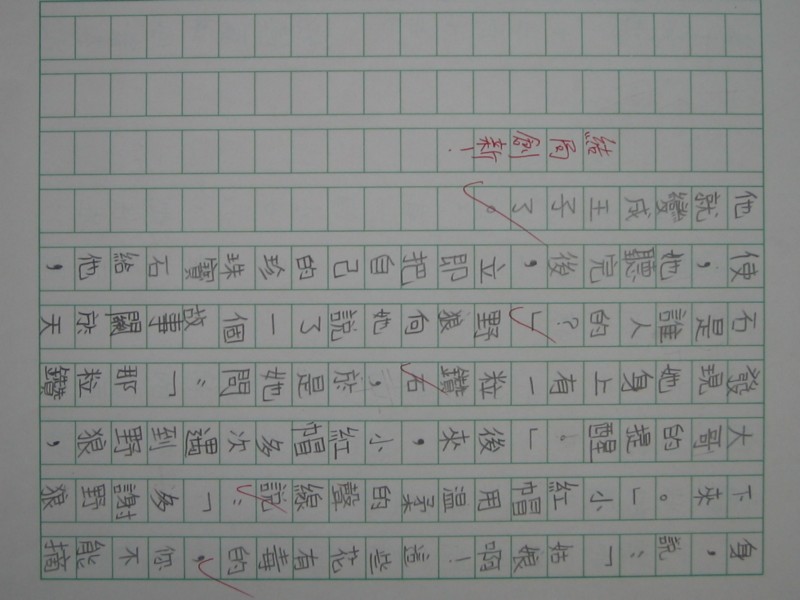 身，說：「姑娘啊！這些花有毒的，你不能摘
下來。」小紅帽用溫柔的聲線說：「多謝野狼
大哥的提醒。」後來，小紅帽多次遇到野狼，
發現他身上有一粒鑽石，於是她問：「那粒鑽
石是誰人的？」野狼向她說了一個故事關於天
使，她聽完後，立即把自己的珍珠寶石給他，
他就變成王子了。
結局創新！